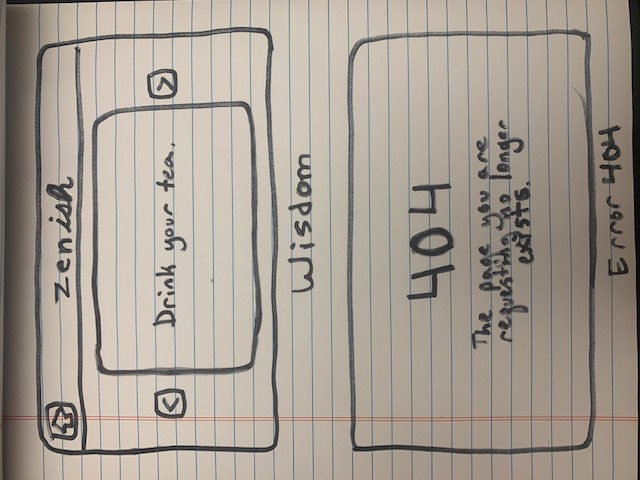 zenish
<
Drink your tea.
>
Wisdom
404
The page you are
requesting no longer
exists.
Error 404